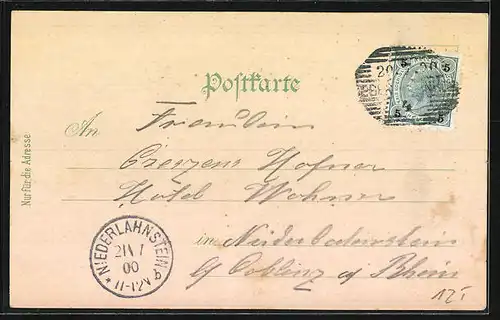 Postkarte
An Fräulein
Creszenz Hofner
Hotel Wohner
in Niederlahnstein
b/ Coblenz a/ Rhein
Nur für die Adresse
NIEDERLAHNSTEIN
21 7
00
11-12V
5
5
5